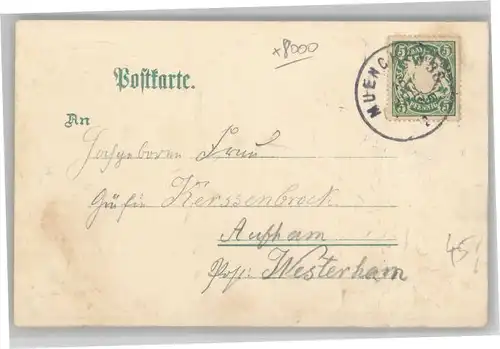 x8000
Postkarte.
MUENCH
5 5
5 PFENNIG 5
An
Hochgeboren Frau
Gräfin Kerssenbrock
Aufham
Post: Westerham
45,-